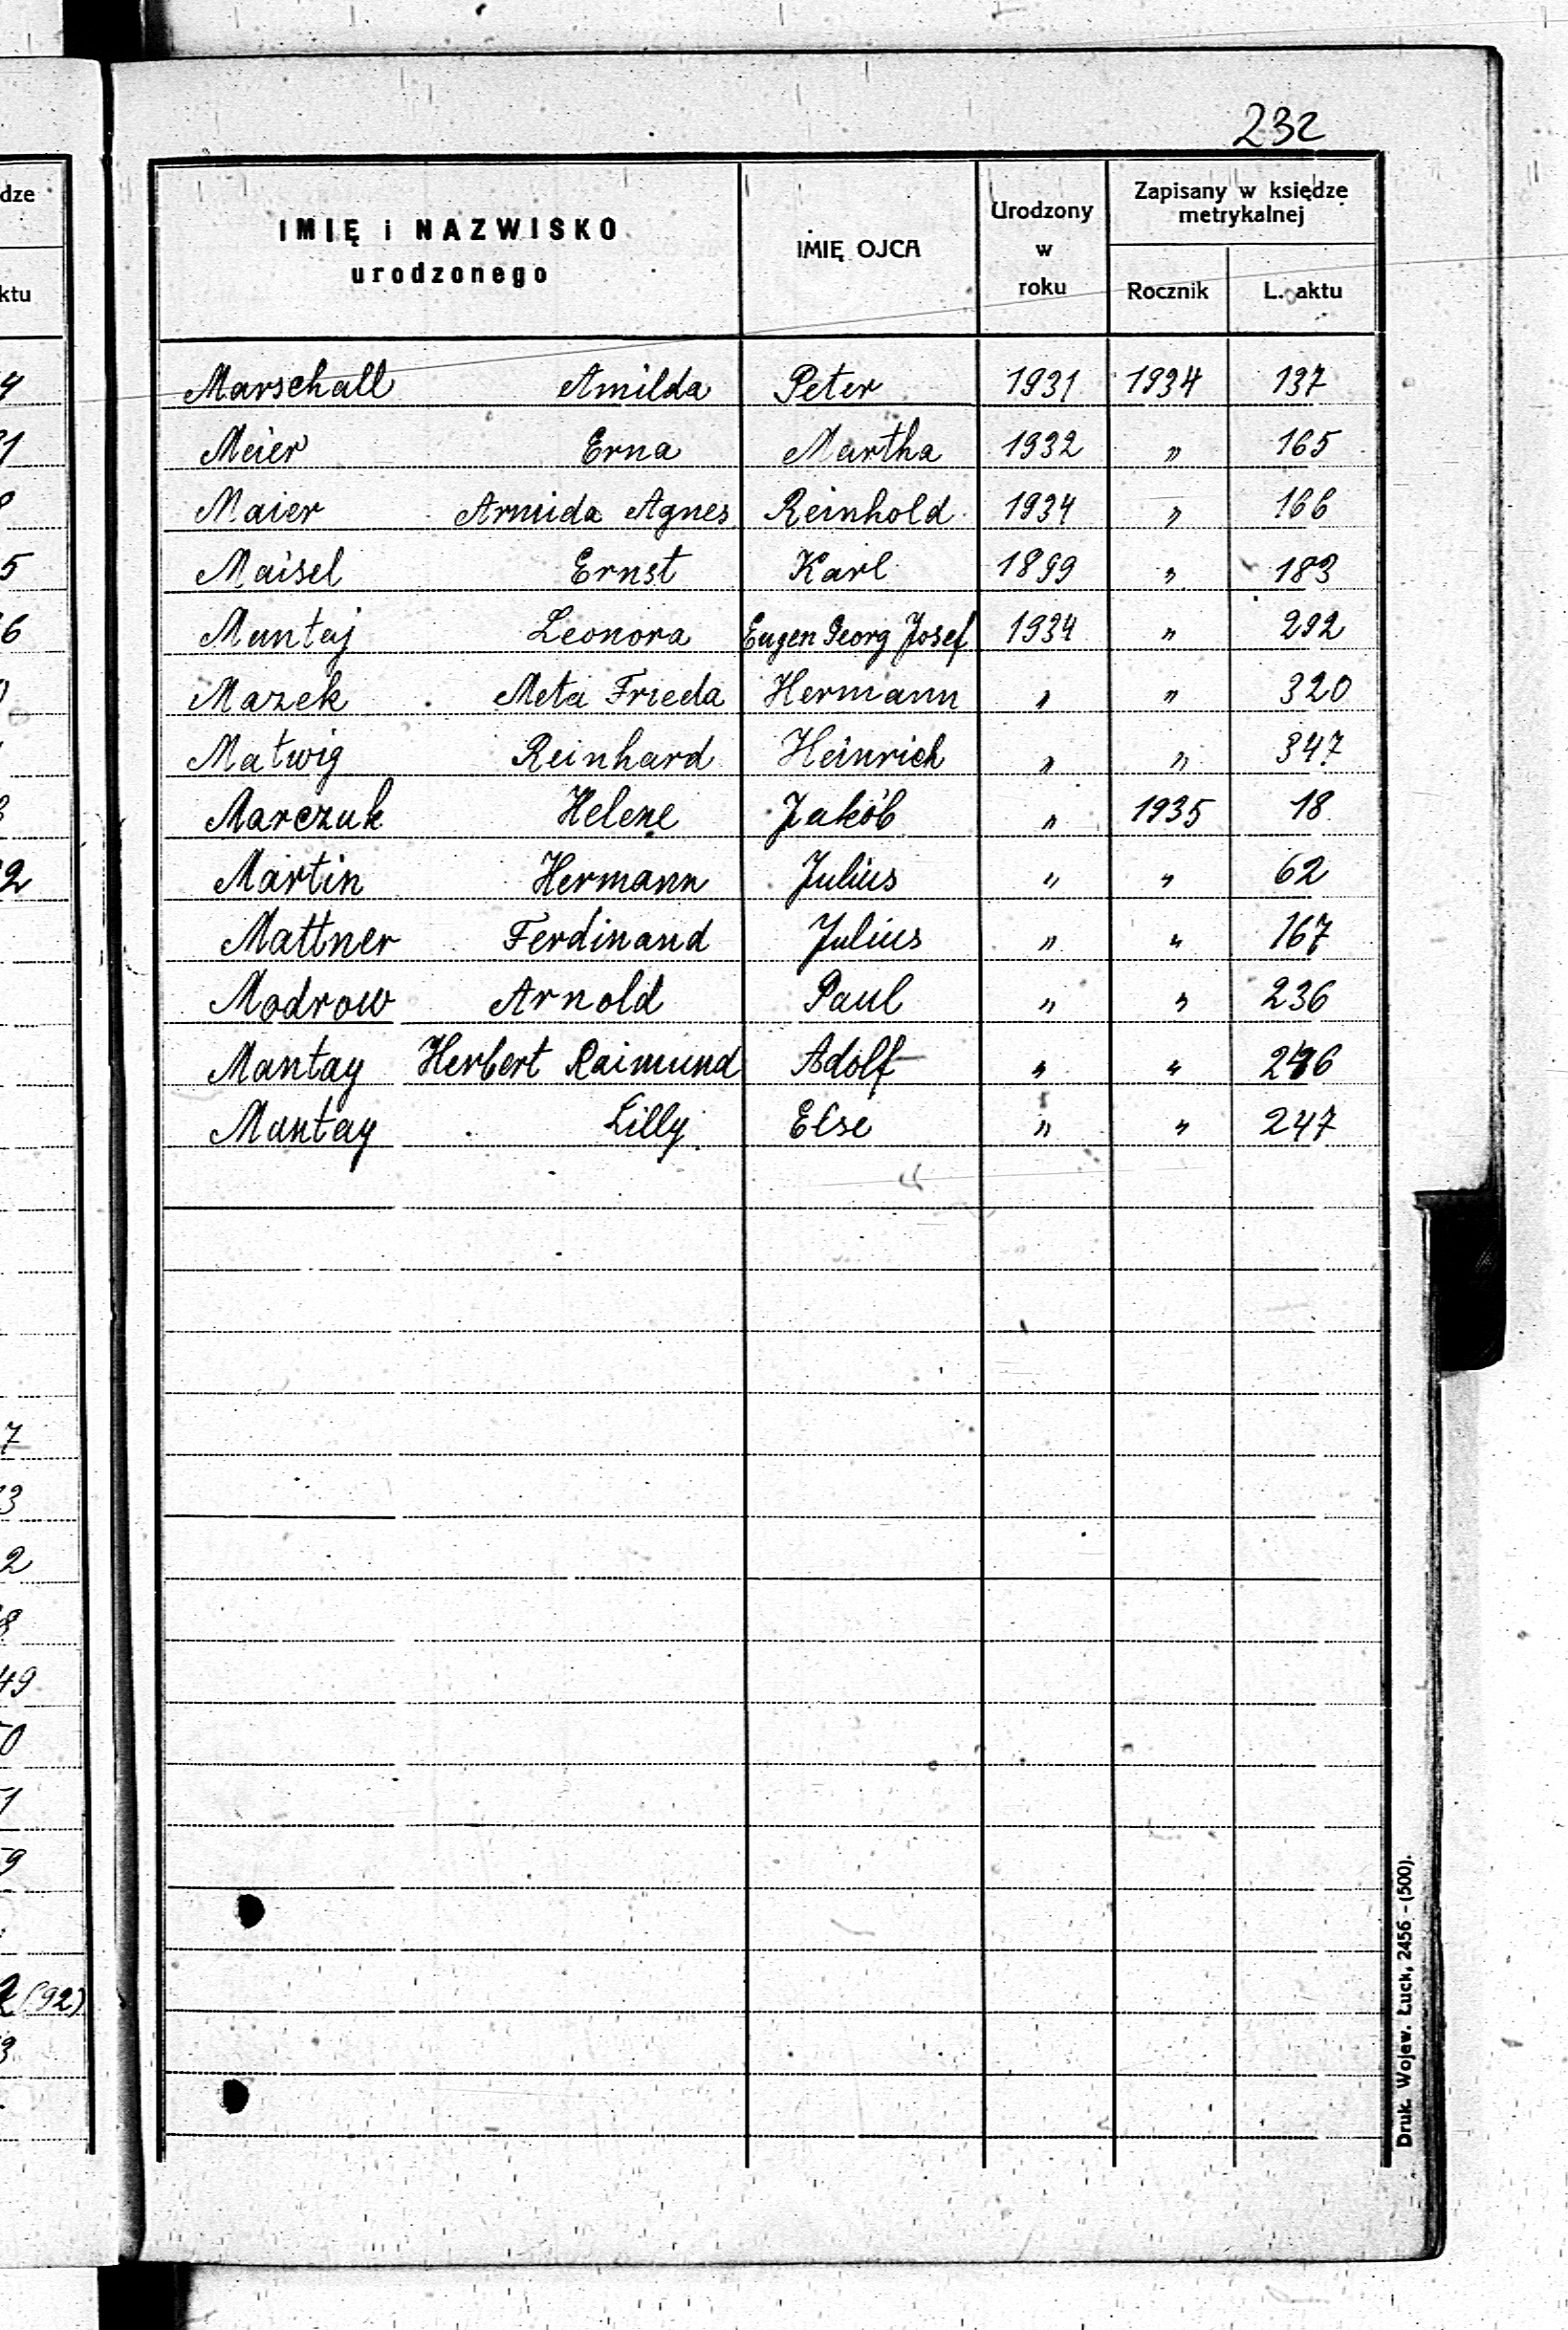 232
IMIĘ i NAZWISKO urodzonego IMIĘ OJCA Urodzony w roku Zapisany w księdze metrykalnej Rocznik L. aktu
Marschall Amilda Peter 1931 1934 137
Meier Erna Martha 1932 " 165
Maier Armida Agnes Reinhold 1934 " 166
Maisel Ernst Karl 1899 " 183
Muntaj Leonora Eugen Georg Josef 1934 " 292
Mazek Meta Frieda Hermann " " 320
Matwig Reinhard Heinrich " " 347
Marczuk Helene Jakób " 1935 18
Martin Hermann Julius " " 62
Mattner Ferdinand Julius " " 167
Modrow Arnold Paul " " 236
Mantay Herbert Raimund Adolf " "
Mantay Lilly Else " " 247
Druk. Wojew. Łuck, 2456 - (500).
dze
ktu
4
31
8
5
6
2
7
3
2
8
49
50
1
59
(92)
3